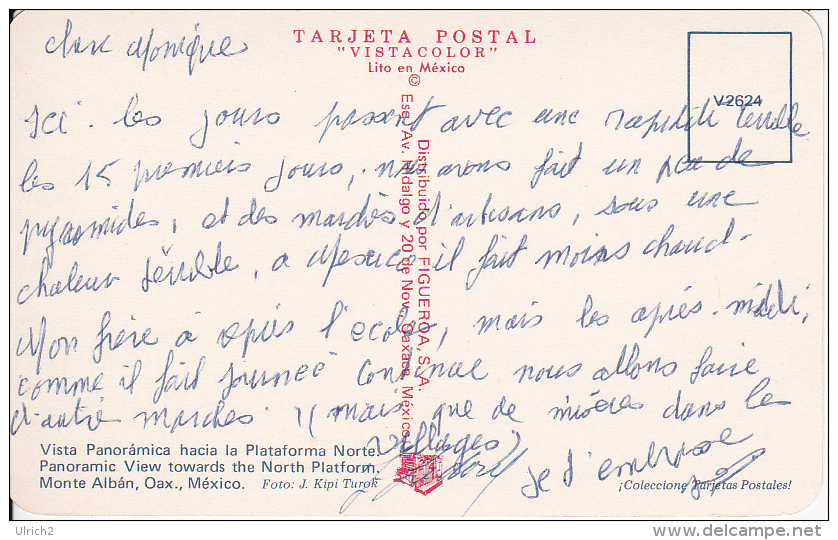 TARJETA POSTAL
"VISTACOLOR"
Lito en México
©
V2624
Chère Monique
Ici les jours passent avec une rapidité terrible
les 15 premiers jours, nous avons fait un peu de
pyramides, et des marchés d'artisans, sous une
chaleur terrible, a Mexico il fait moins chaud.
Mon frère a repris l'ecole, mais les après-midi,
comme il fait journée continue nous allons faire
d'autre marches (mais que de misères dans les
villages)
je t'embrasse
Distribuido por FIGUEROA, S. A.
Esq. Av. Hidalgo y 20 de Nov. Oaxaca, México
Vista Panorámica hacia la Plataforma Norte.
Panoramic View towards the North Platform.
Monte Albán, Oax., México. Foto: J. Kipi Turok
¡Coleccione Tarjetas Postales!
Ulrich2
delcampe.net